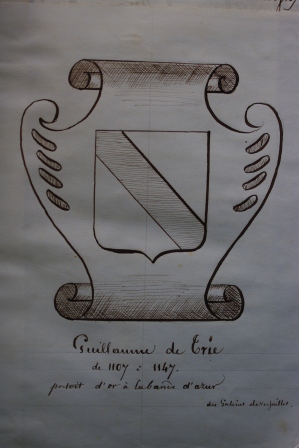 Guillaume de Trie
de 1107 à 1147.
portait d'or à la bande d'azur
des Galeries de Versailles.